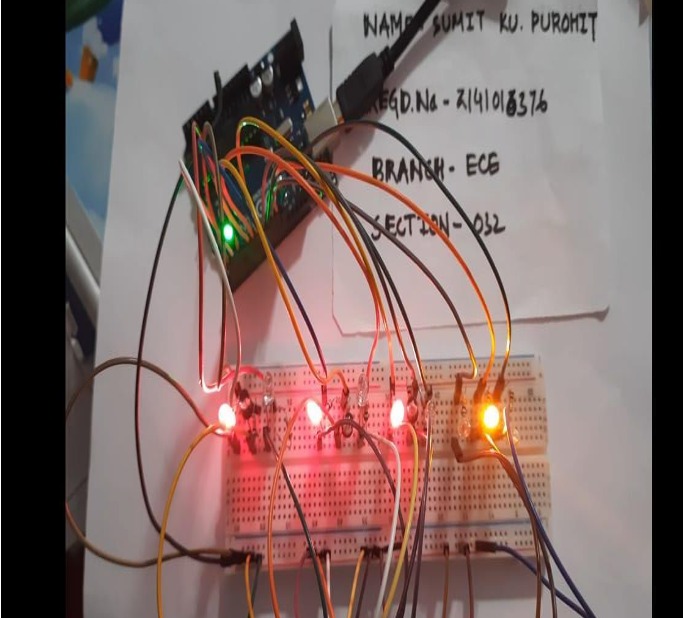 NAME- SUMIT KU. PUROHIT
REGD.No - 2141016376
BRANCH- ECE
SECTION- 032